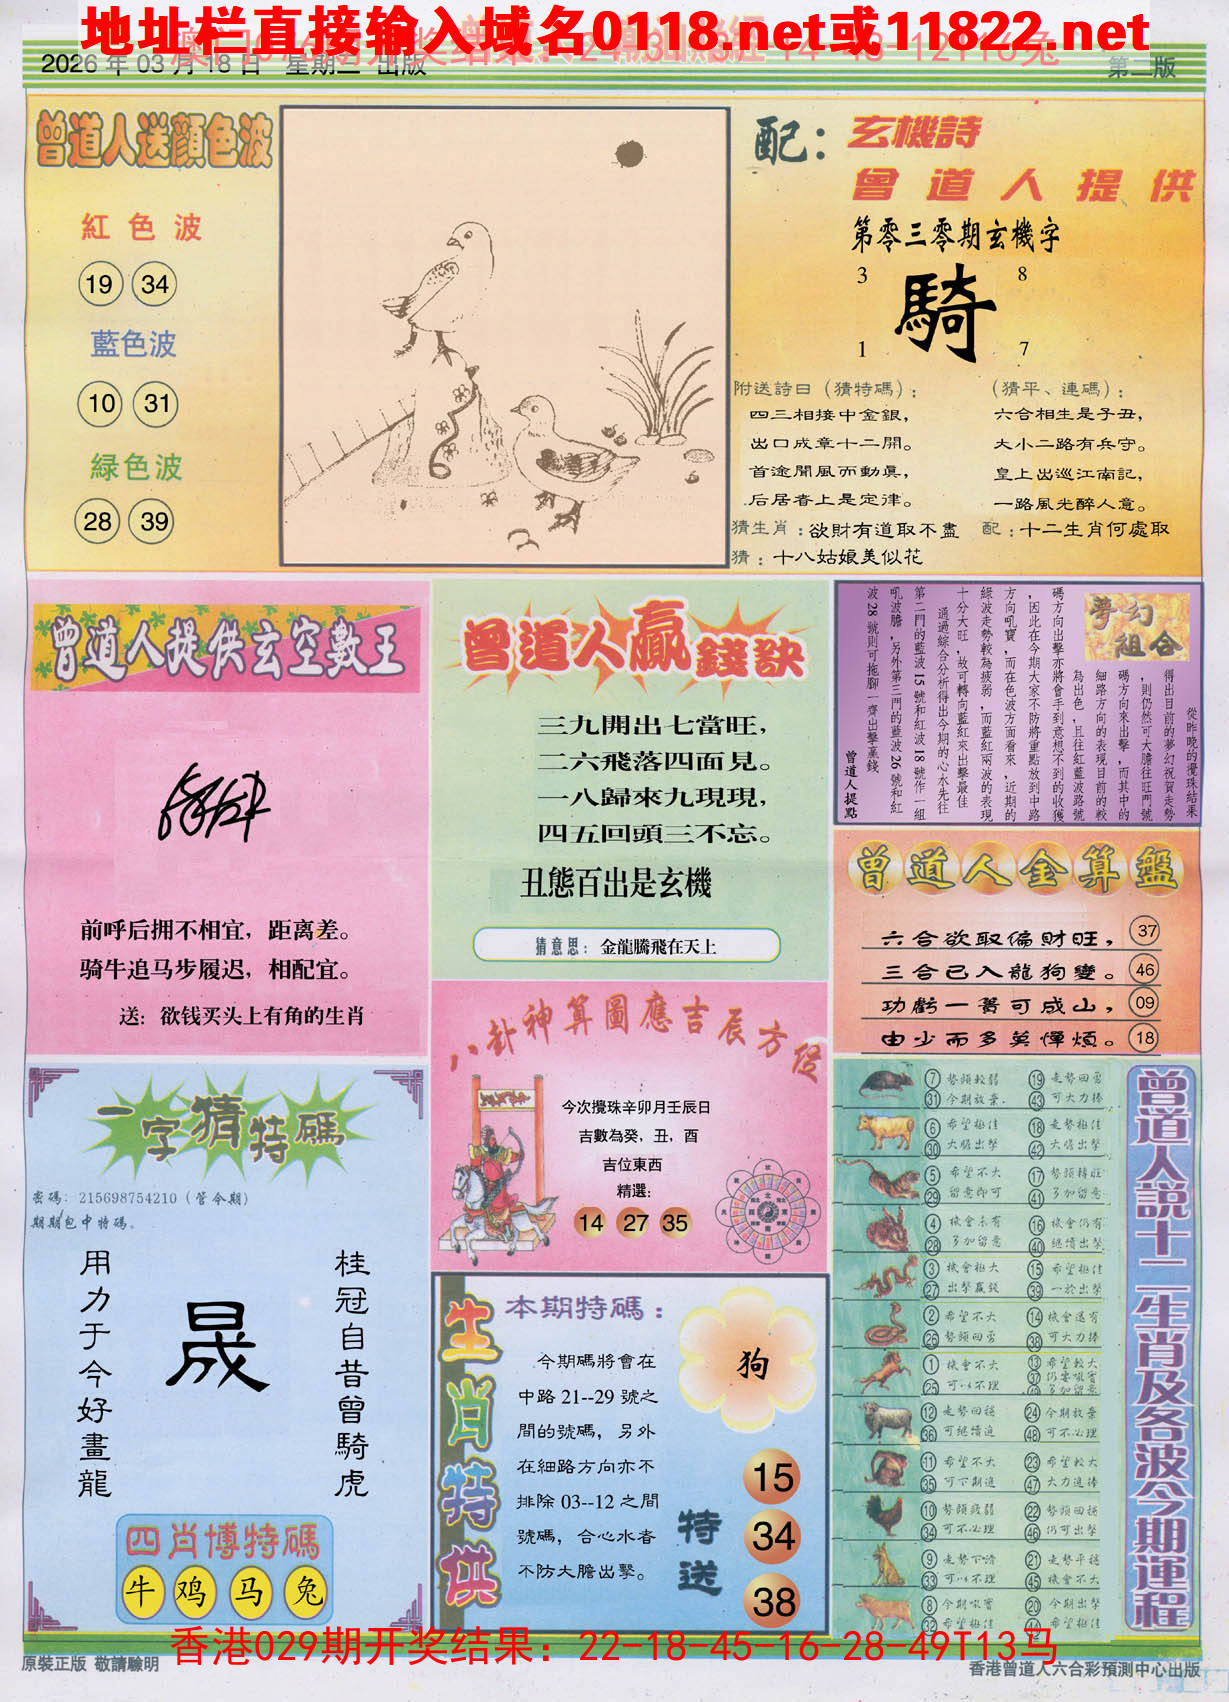 地址栏直接输入域名0118.net或11822.net
2026年03月18日 星期三 出版
第二版
曾道人送顏色波
紅色波
19 34
藍色波
10 31
緑色波
28 39
配：玄機詩
曾道人提供
第零三零期玄機字
3 8
騎
1 7
附送詩曰（猜特碼）：
四三相接中金銀，
出口成章十二開。
首途開風而動眞，
后居者上是定律。
（猜平、連碼）：
六合相生是子丑，
大小二路有兵守。
皇上出巡江南記，
一路風光醉人意。
猜生肖：欲財有道取不盡 配：十二生肖何處取
猜：十八姑娘美似花
曾道人提供玄空數王
前呼后拥不相宜，距离差。
骑牛追马步履迟，相配宜。
送：欲钱买头上有角的生肖
曾道人贏錢訣
三九開出七當旺，
二六飛落四面見。
一八歸來九現現，
四五回頭三不忘。
丑態百出是玄機
猜意思：金龍騰飛在天上
夢幻組合
從昨晚的攪珠結果
得出目前的夢幻祝賀走勢
，則仍然可大膽往旺門號
碼方向來出擊，而其中的
細路方向的表現目前的較
為出色，且往紅藍波路號
碼方向出擊亦將會手到意想不到的收獲
，因此在今期大家不防將重點放到中路
方向吼寶，而在色波方面看來，近期的
綠波走勢較為疲弱，而藍紅兩波的表現
十分大旺，故可轉向藍紅來出擊最佳
通過綜合分析得出今期的心水先往
第二門的藍波15號和紅波18號作一組
吼波膽，另外第三門的藍波26號和紅
波28號則可拖腳一齊出擊贏錢
曾道人提點
曾道人金算盤
六合欲取偏財旺，37
三合已入龍狗變。46
功虧一簣可成山，09
由少而多莫憚煩。18
八卦神算圖應吉辰方位
今次攪珠辛卯月壬辰日
吉數為癸，丑，酉
吉位東西
精選：
14 27 35
一字猜特碼
密碼：215698754210（管今期）
期期包中特碼。
桂冠自昔曾騎虎
晟
用力于今好畫龍
四肖博特碼
牛 鸡 马 兔
生肖特供
本期特碼：
今期碼將會在
中路21--29號之
間的號碼，另外
在細路方向亦不
排除03--12之間
號碼，合心水者
不防大膽出擊。
狗
特送
15
34
38
曾道人説十二生肖及各波今期運程
7 勢頭較弱 19 走勢回勇
31 今期放棄 43 可大力捧
6 希望極佳 18 走勢極佳
30 大膽出擊 42 大膽出擊
5 希望不大 17 勢頭轉旺
29 留意即可 41 多加留意
4 機會未有 16 機會仍有
28 多加留意 40 繼續出擊
3 機會極大 15 希望極佳
27 出擊贏錢 39 一於出擊
2 希望不大 14 機會還有
26 勢頭回勇 38 可大力捧
1 機會不大 13 希望較大
25 可以不理 37 仍要吼實
49 多加留意
12 走勢回穩 24 今期放棄
36 可繼續追 48 可不必理
11 希望不大 23 希望較大
35 可下期追 47 大力追捧
10 勢頭疲弱 22 勢頭回穩
34 可不必理 46 仍可出擊
9 走勢下滑 21 走勢平穩
33 可以不理 45 機會不大
8 今期吼實 20 今期出擊
32 希望極佳 44 希望極佳
香港029期开奖结果：22-18-45-16-28-49T13马
原裝正版 敬請驗明
香港曾道人六合彩預測中心出版